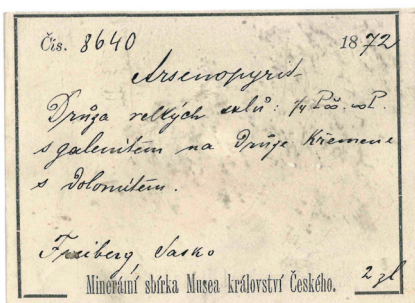 Čís. 8640 1872
Arsenopyrit.
Drůza velkých xxlů: ¼ P̆∞. ∞P.
s galenitem na drůze Křemene
s dolomitem.
Freiberg, Sasko
Minerální sbírka Musea království Českého.
2 zl